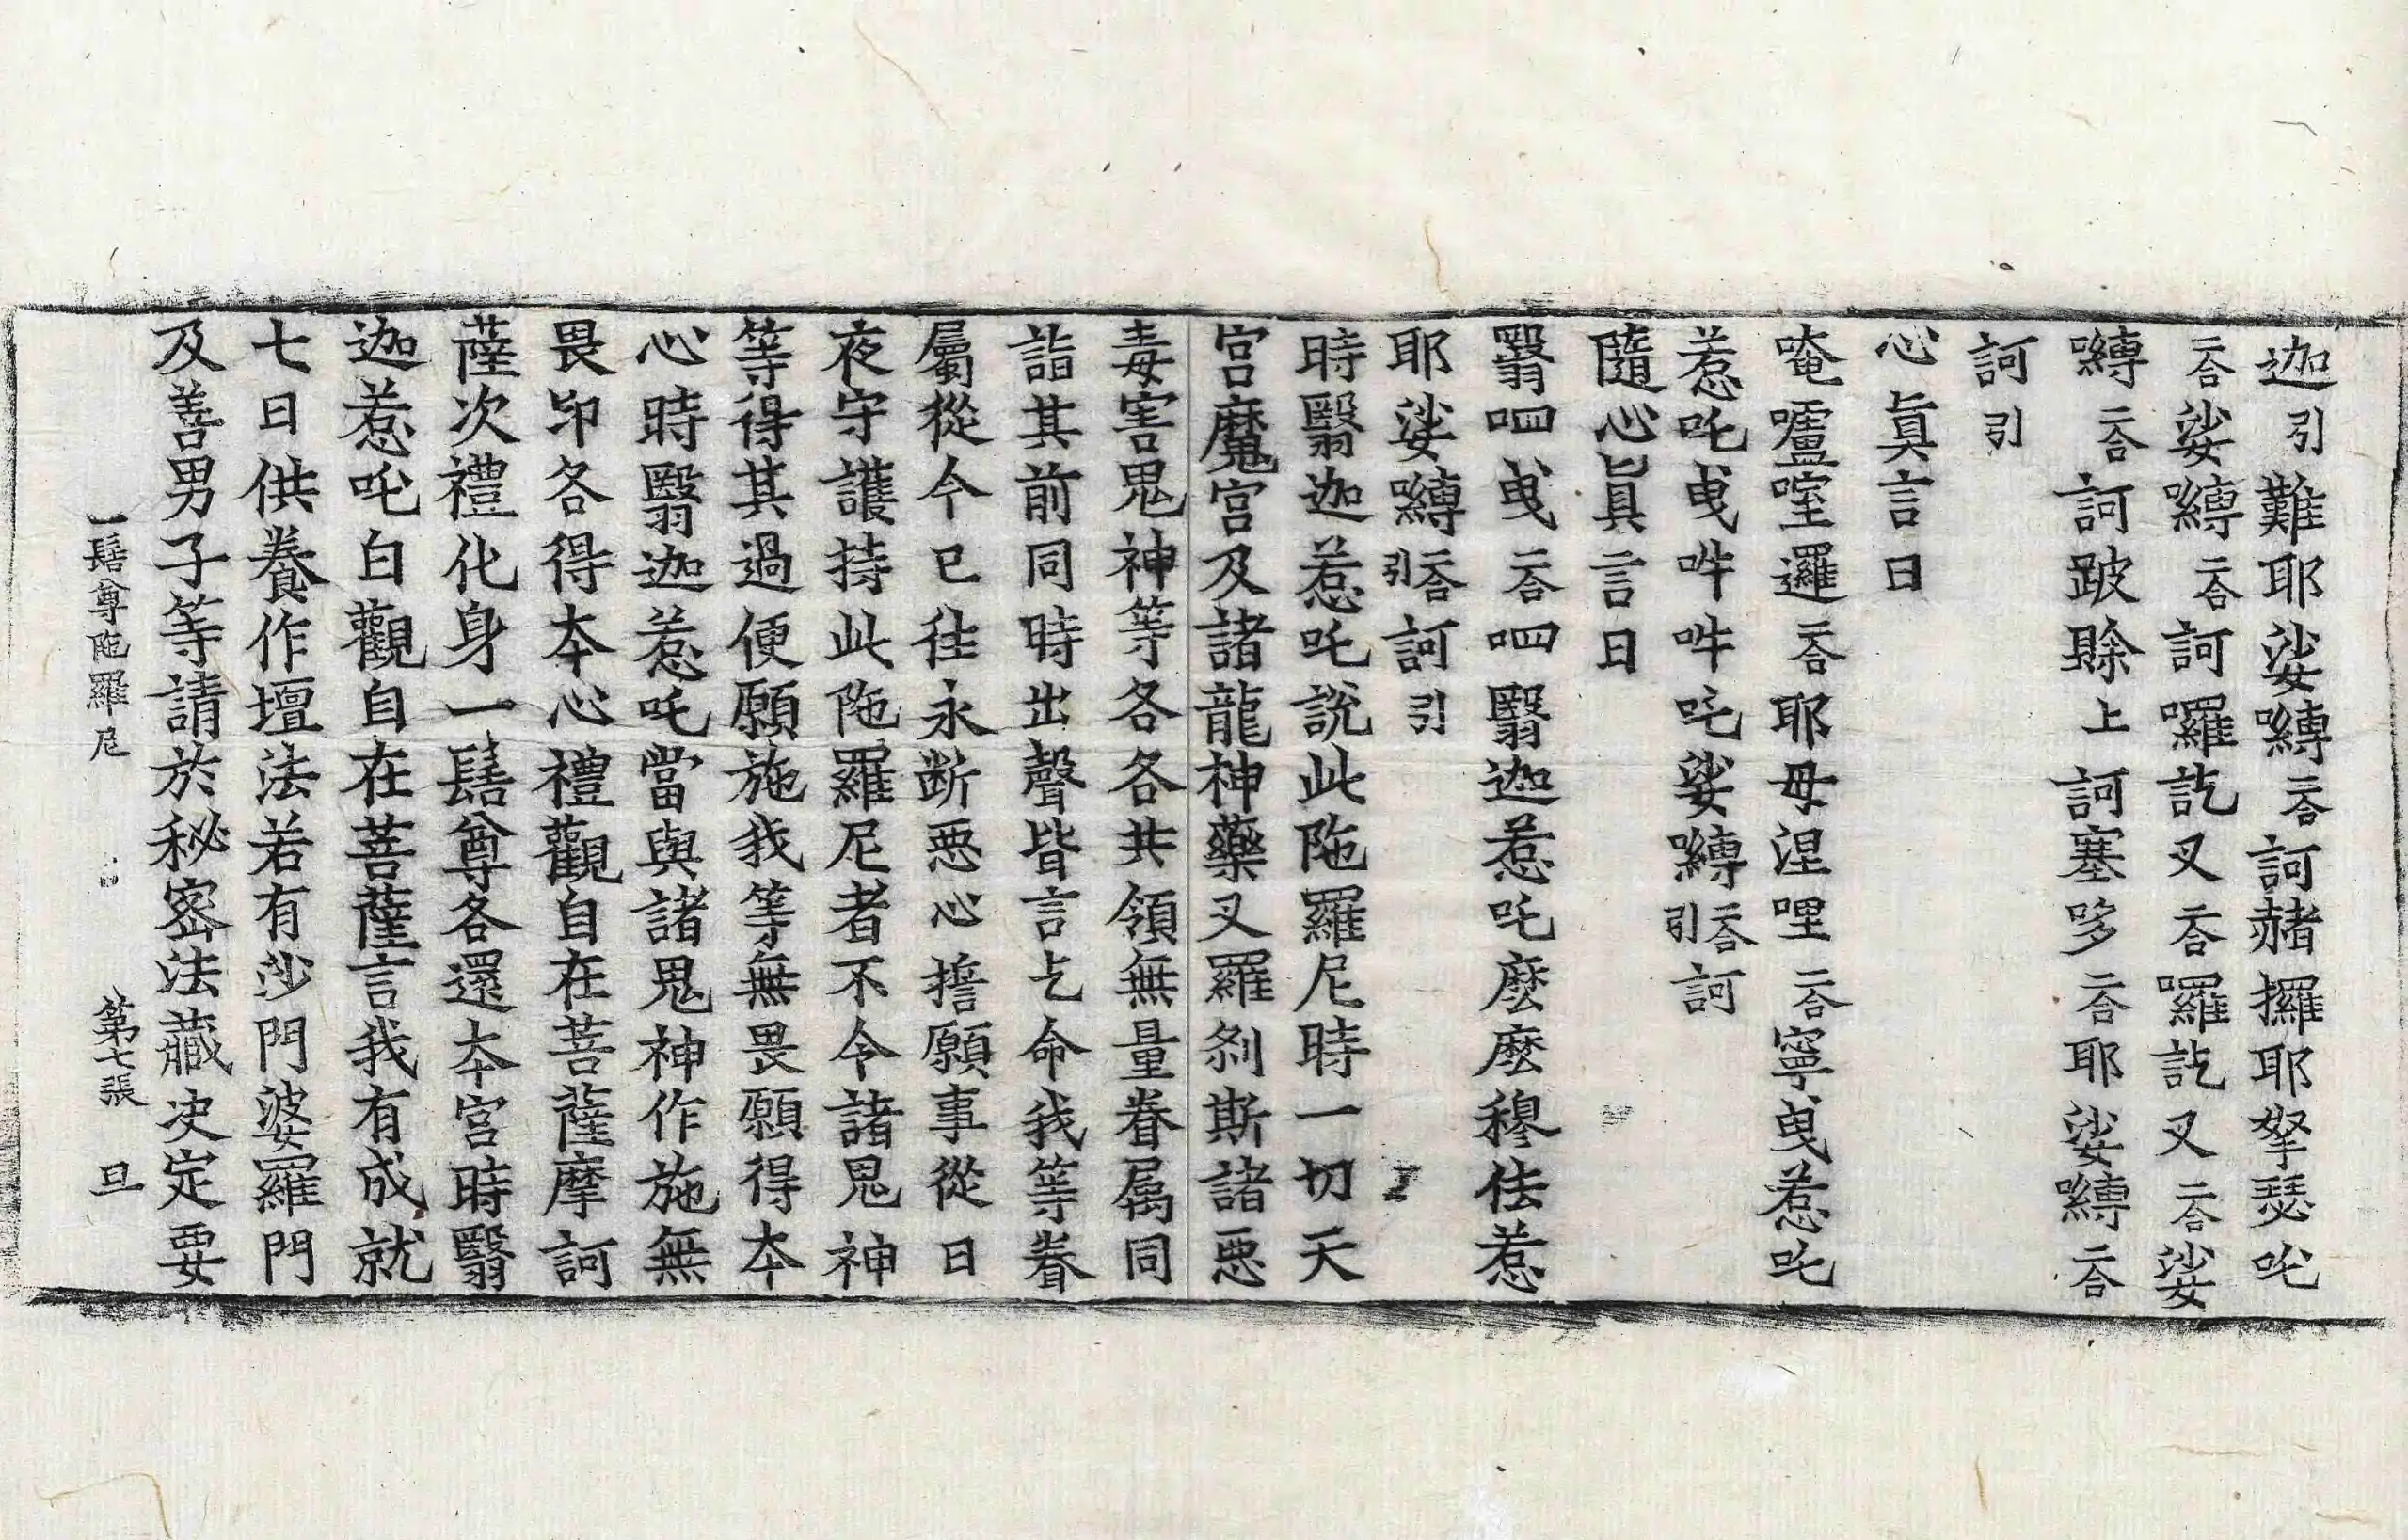 迦引難耶娑嚩二合訶赭攞耶拏瑟吒
二合娑嚩二合訶囉訖叉二合囉訖叉二合娑
嚩二合訶跛賖上訶塞哆二合耶娑嚩二合
訶引
心真言曰
唵嚧嚂邏二合耶母涅哩二合寧曳惹吒
惹吒曳吽吽吒娑嚩二合引訶
隨心真言曰
翳呬曳二合呬翳迦惹吒麽麽穆佉惹
耶娑嚩二合引訶引
時翳迦惹吒說此陁羅尼時一切天
宮魔宮及諸龍神藥叉羅剎斯諸惡
毒害鬼神等各各共領無量眷屬同
詣其前同時出聲皆言乞命我等眷
屬從今已往永断惡心誓願事從日
夜守護持此陁羅尼者不令諸鬼神
等得其過便願施我等無畏願得本
心時翳迦惹吒當與諸鬼神作施無
畏印各得本心禮觀自在菩薩摩訶
薩次禮化身一髻尊各還本宮時翳
迦惹吒白觀自在菩薩言我有成就
七日供養作壇法若有沙門婆羅門
及善男子等請於秘密法藏決定要
一髻尊陁羅尼 第七張 旦